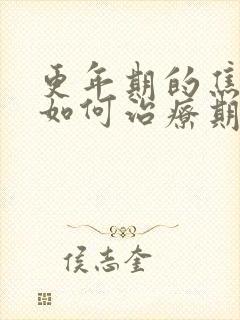 更年期的焦
如何治療期
侯志奎